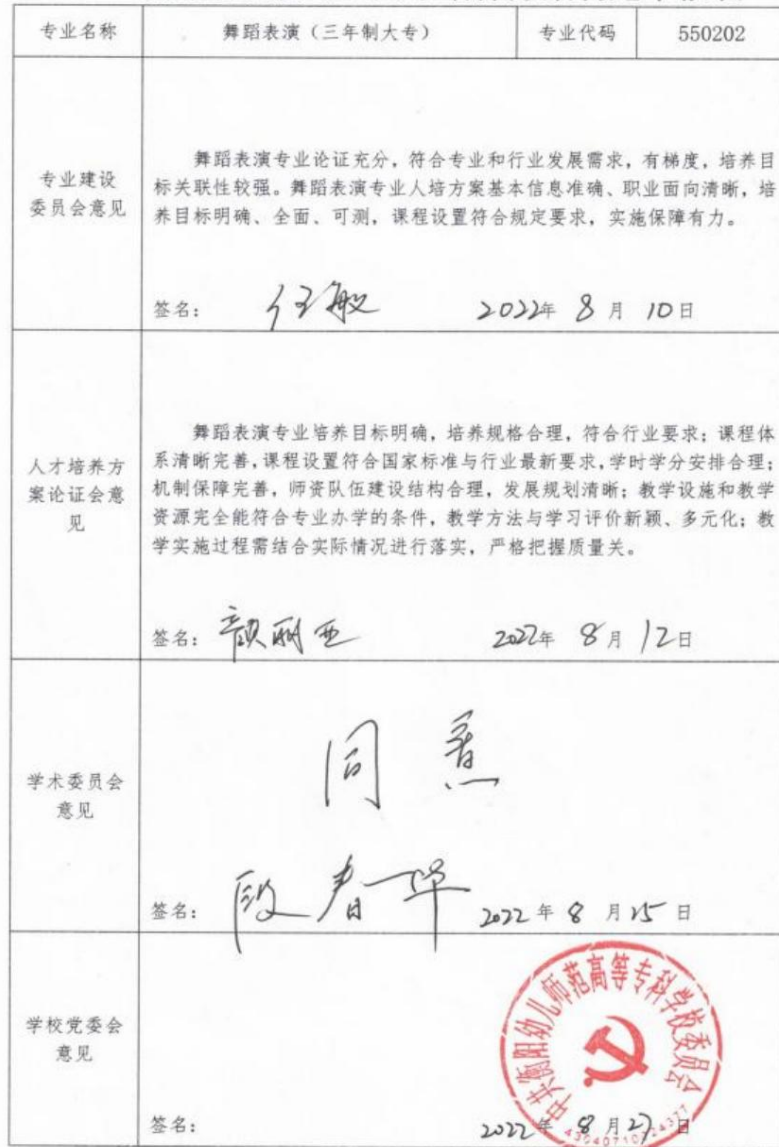 专业名称 舞蹈表演（三年制大专） 专业代码 550202
专业建设
委员会意见
舞蹈表演专业论证充分，符合专业和行业发展需求，有梯度，培养目
标关联性较强。舞蹈表演专业人培方案基本信息准确、职业面向清晰，培
养目标明确、全面、可测，课程设置符合规定要求，实施保障有力。
签名： 任敏 2022年 8月 10日
人才培养方
案论证会意
见
舞蹈表演专业培养目标明确，培养规格合理，符合行业要求；课程体
系清晰完善，课程设置符合国家标准与行业最新要求，学时学分安排合理；
机制保障完善，师资队伍建设结构合理，发展规划清晰；教学设施和教学
资源完全能符合专业办学的条件，教学方法与学习评价新颖、多元化；教
学实施过程需结合实际情况进行落实，严格把握质量关。
签名： 颜丽亚 2022年 8月 12日
学术委员会
意见
同意
签名： 段春华 2022年 8月 25日
学校党委会
意见
中共衡阳幼儿师范高等专科学校委员会
签名： 2022年 8月 27日